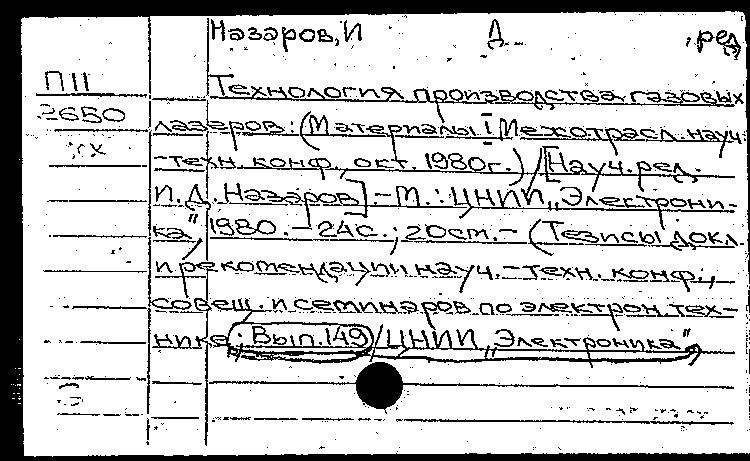 Назаров, И Д , ред
П11
2650
Технология производства газовых
лазеров: (Материалы I Межотрасл. науч.
-техн. конф., окт. 1980г.) / [Науч. ред.
И. Д. Назаров] - М.: ЦНИИ „Электрони-
ка", 1980. - 24с.; 20см. - (Тезисы докл.
и рекомендации науч.-техн. конф.,
совещ. и семинаров по электрон. тех-
нике; Вып. 149 / ЦНИИ „Электроника")